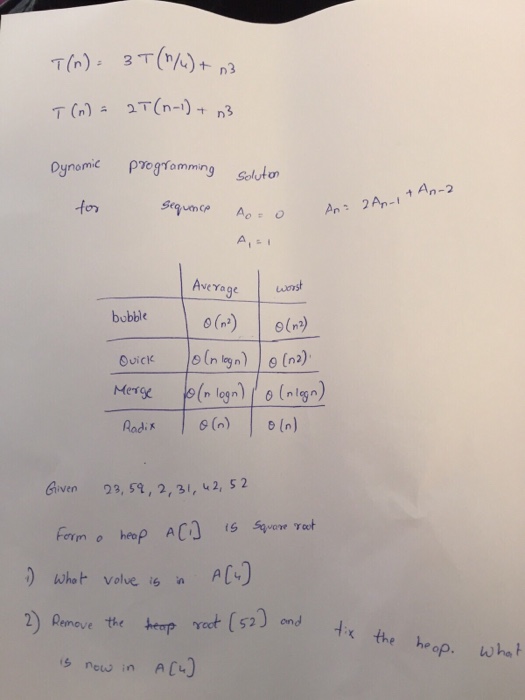 T(n) = 3T(n/4) + n3
T(n) = 2T(n-1) + n3
Dynamic programming Soluton
for Sequence A0 = 0 An = 2An-1 + An-2
A1 = 1
Average worst
bubble θ(n²) θ(n²)
Quick θ(n logn) θ(n2).
Merge θ(n logn) θ(nlogn)
Radix θ(n) θ(n)
Given 23, 59, 2, 31, 42, 52
Form a heap A[1] is Square root
1) What value is in A[4]
2) Remove the heap root [52] and fix the heap. What
is now in A[4]